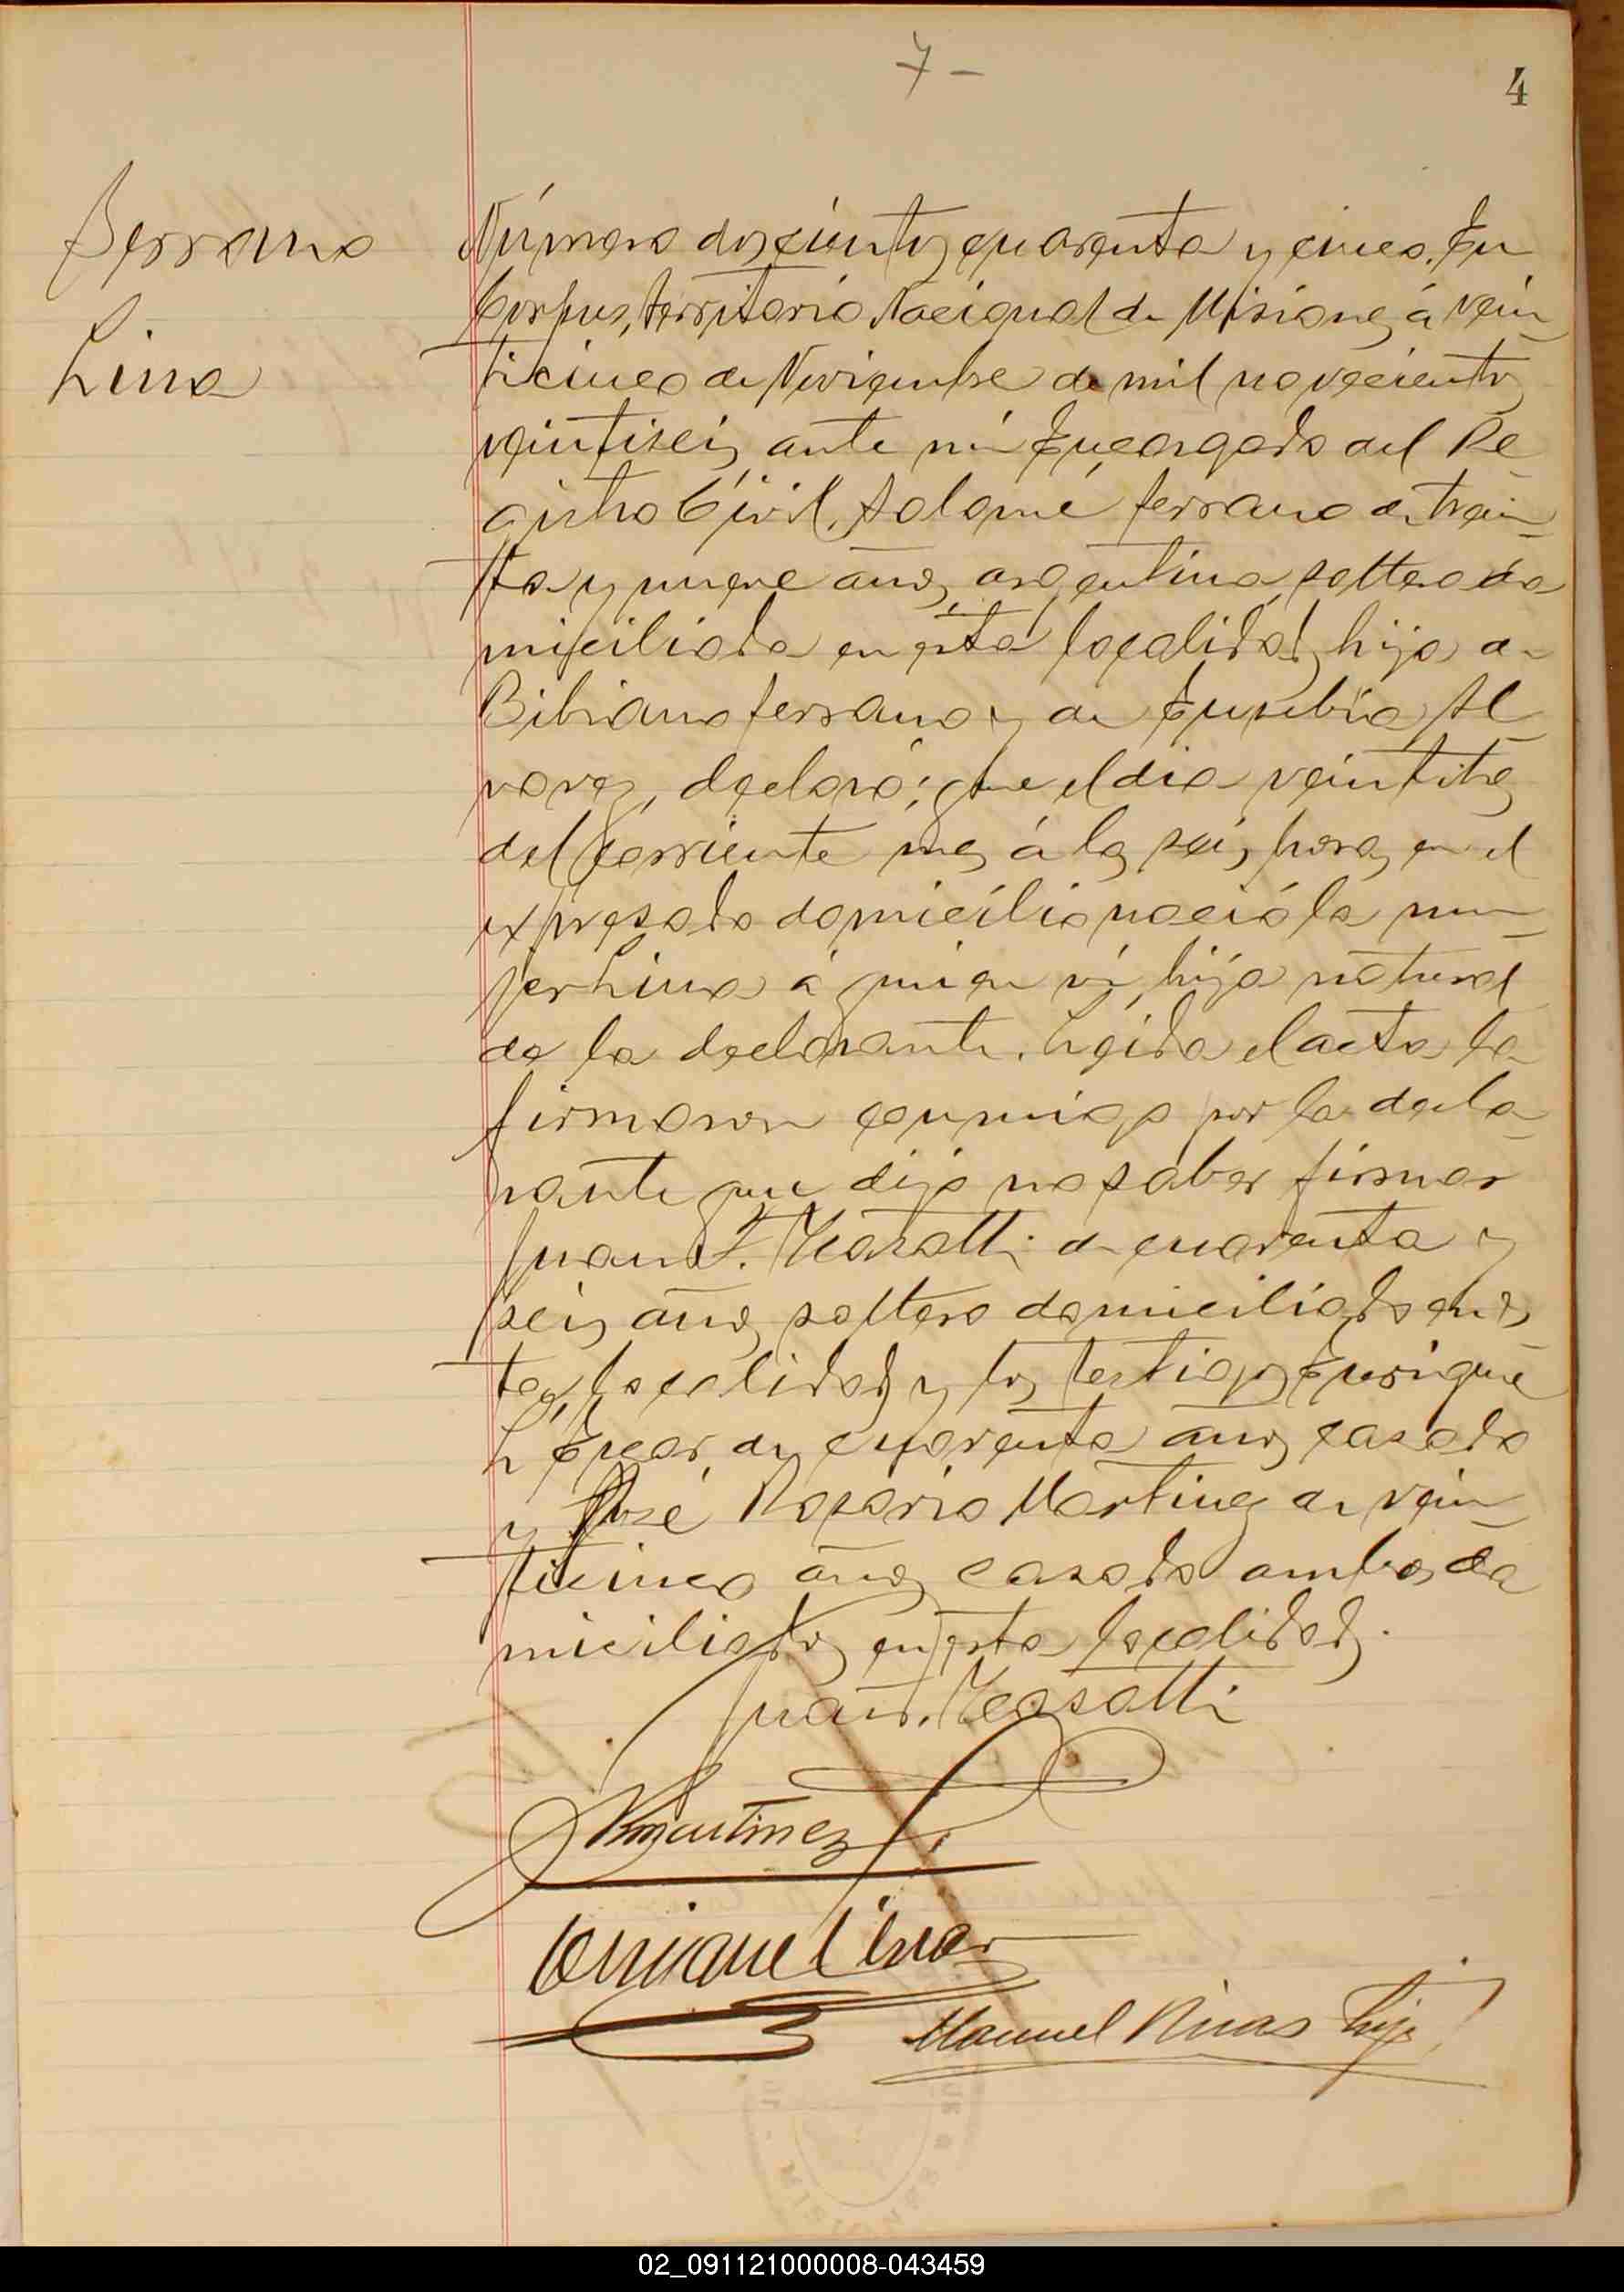 7 -
4
Serrano
Lina
Número doscientos cuarenta y cinco. En
Corpus, territorio Nacional de Misiones á vein
ticinco de Noviembre de mil novecientos
veintiseis, ante mi Encargado del Re
gistro Civil, Salomé Serrano de trein
ta y nueve años, argentina, soltera do
miciliada en esta localidad, hija de
Bibiano Serrano y de Eusebia Al
varez, declaró: Que el dia veintitres
del corriente mes á las seis horas en el
expresado domicilio nació la mu
jer Lina á quien vi, hija natural
de la declarante. Leida el acta la
firmaron conmigo por la decla
rante que dijo no saber firmar
Juan F. de cuarenta y
seis años, soltero domiciliado en es
ta localidad y los testigos Enrique
L de cuarenta años casado
y José Rosario Martinez de vein
ticinco años casado ambos do
miciliados en esta localidad.
Juan
RMartinez
Enrique
Manuel Rivas hijo
02_091121000008-043459